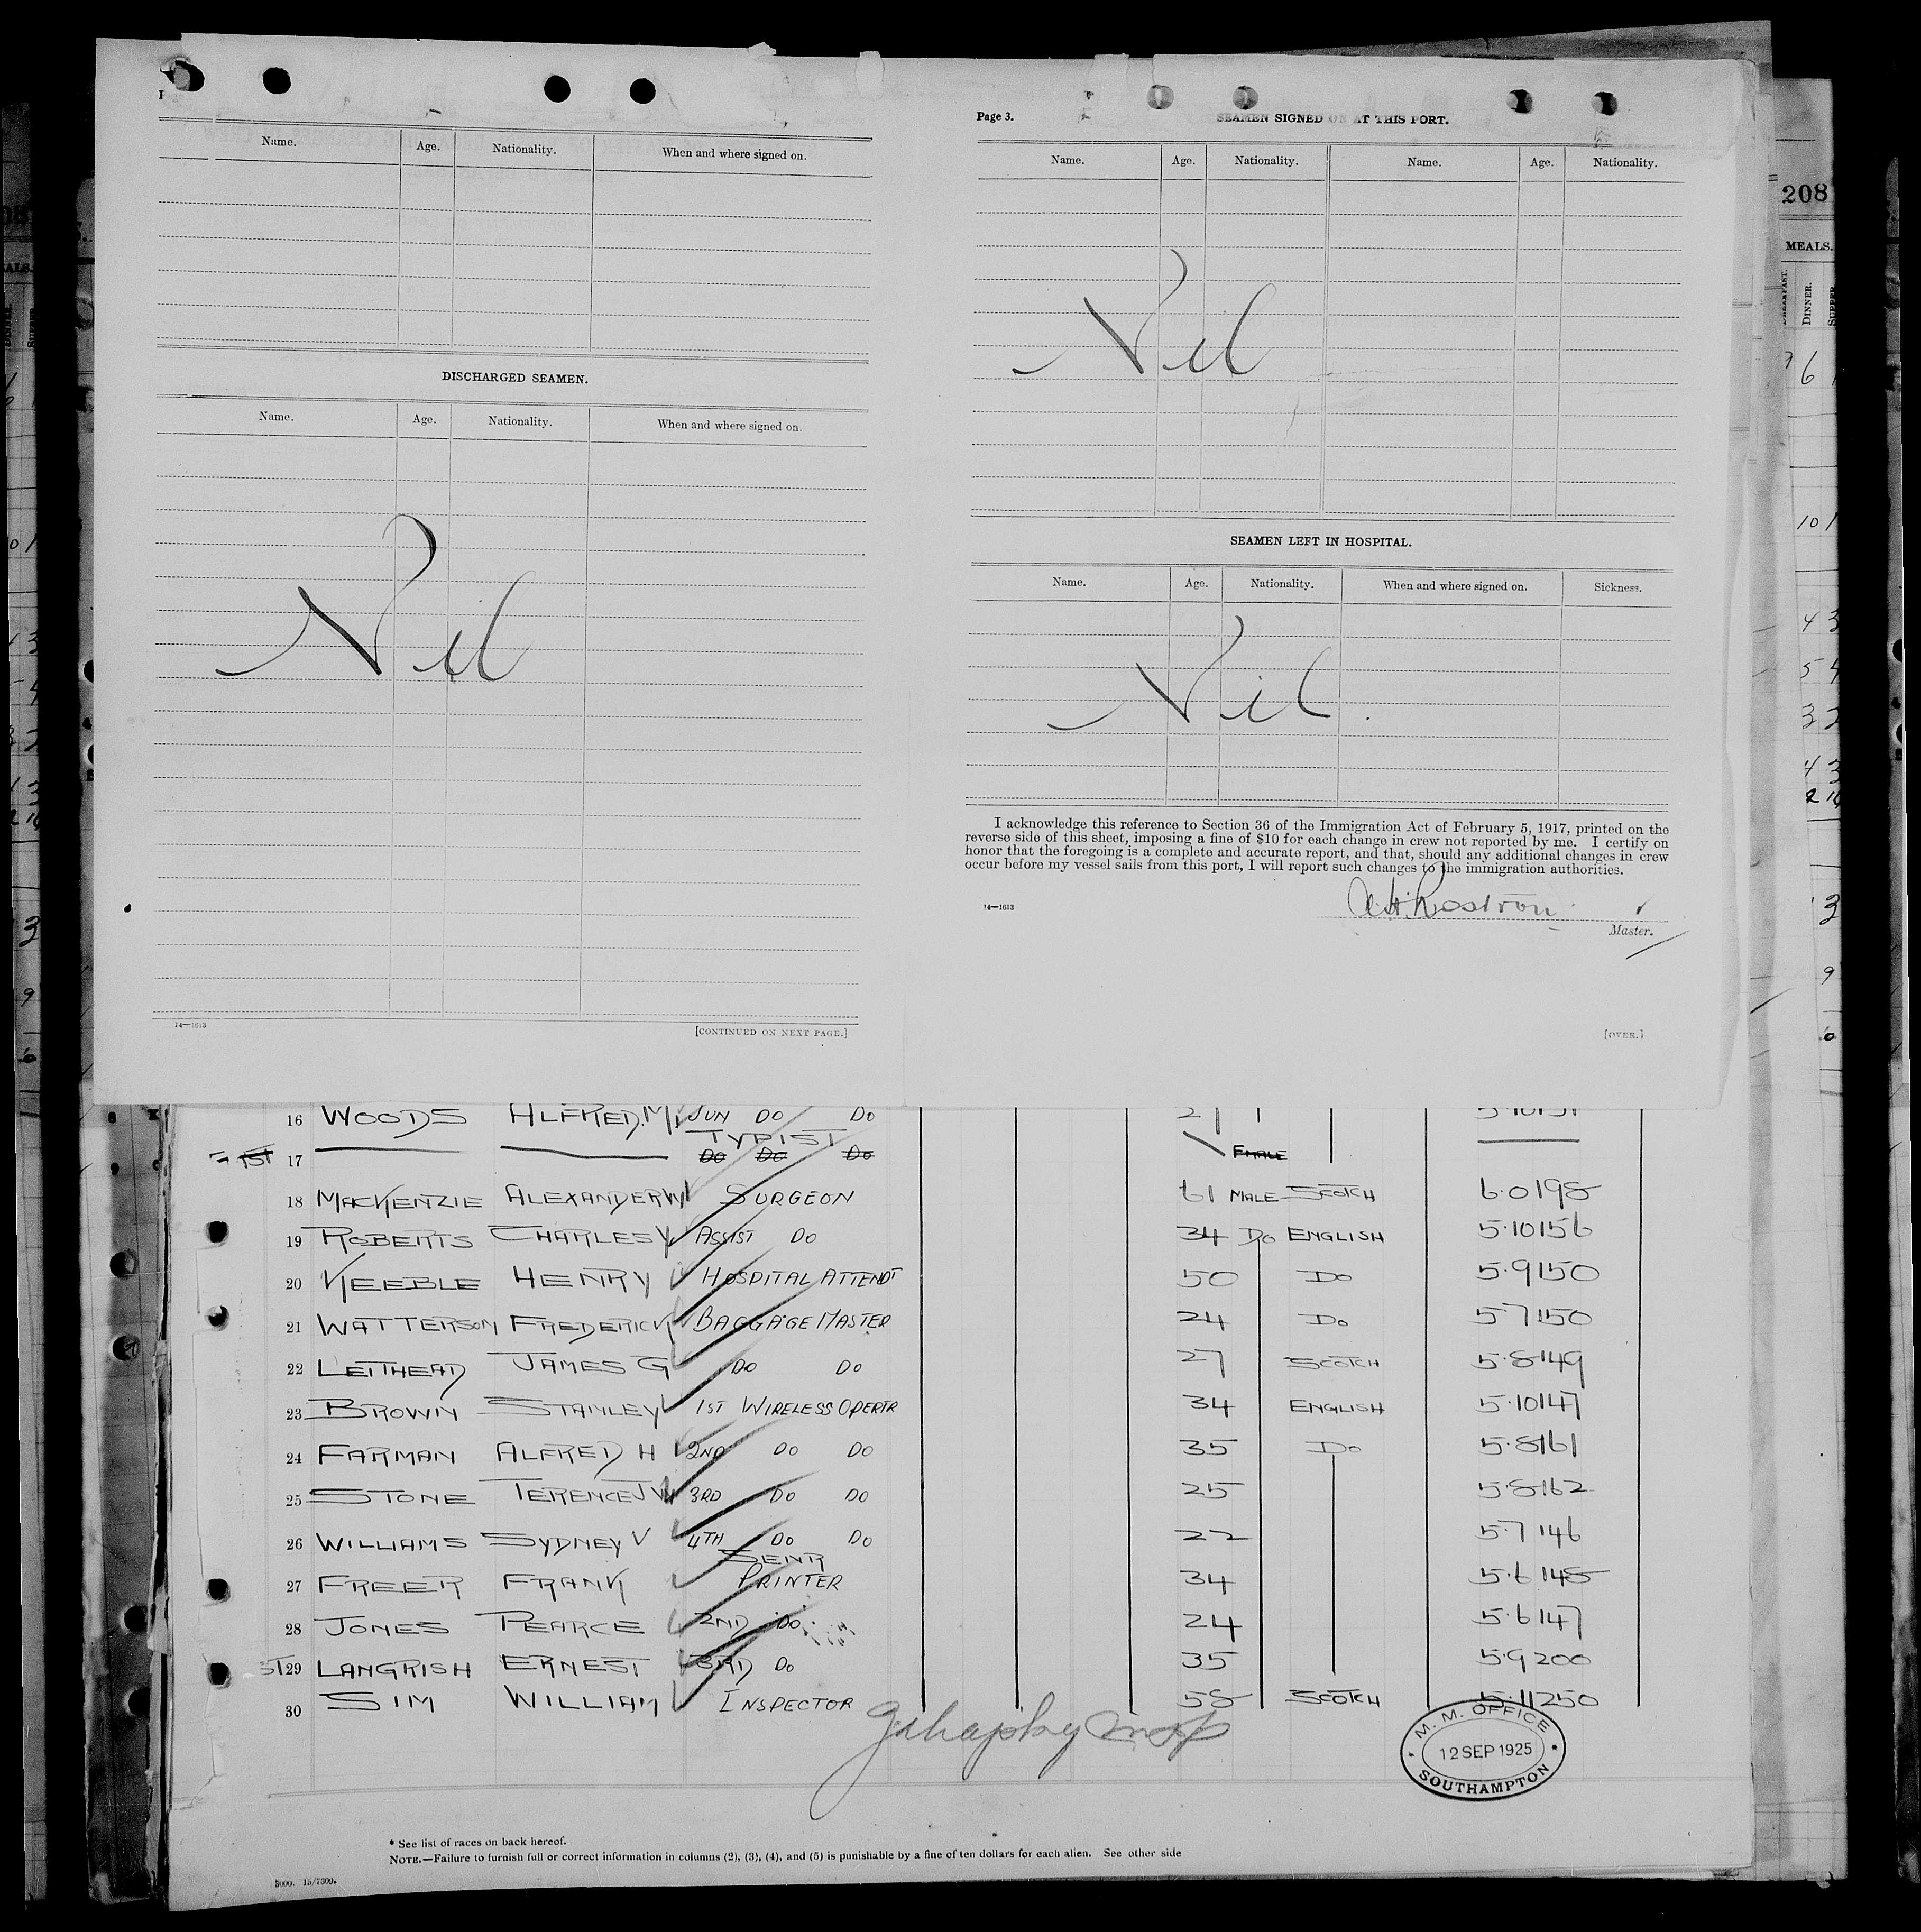 Name. Age. Nationality. When and where signed on.
DISCHARGED SEAMEN.
Name. Age. Nationality. When and where signed on.
Nil
14—1613
[CONTINUED ON NEXT PAGE.]
Page 3.
SEAMEN SIGNED ON AT THIS PORT.
Name. Age. Nationality. Name. Age. Nationality.
Nil
SEAMEN LEFT IN HOSPITAL.
Name. Age. Nationality. When and where signed on. Sickness.
Nil.
I acknowledge this reference to Section 36 of the Immigration Act of February 5, 1917, printed on the
reverse side of this sheet, imposing a fine of $10 for each change in crew not reported by me. I certify on
honor that the foregoing is a complete and accurate report, and that, should any additional changes in crew
occur before my vessel sails from this port, I will report such changes to the immigration authorities.
14—1613
A H Rostron
Master.
[OVER.]
208
MEALS.
BREAKFAST. DINNER. SUPPER
16 WOODS ALFRED.M. JUN DO DO
TYPIST
17 DO DO DO FMALE
18 MACKENZIE ALEXANDER W SURGEON 61 MALE SCOTCH 6.0 198
19 ROBERTS CHARLES V ASSIST DO 34 DO ENGLISH 5.10 156
20 KEEBLE HENRY HOSPITAL ATTENDT 50 DO 5.9 150
21 WATTERSON FREDERICK BAGGAGE MASTER 24 DO 5.7 150
22 LEITHEAD JAMES G DO DO 27 SCOTCH 5.8 149
23 BROWN STANLEY 1ST WIRELESS OPERTR 34 ENGLISH 5.10 147
24 FARMAN ALFRED H 2ND DO DO 35 DO 5.8 161
25 STONE TERENCE J W 3RD DO DO 25 5.8 162
26 WILLIAMS SYDNEY V 4TH DO DO 22 5.7 146
SENR
27 FREER FRANK PRINTER 34 5.6 148
28 JONES PEARCE 2ND DO 24 5.6 147
29 LANGRISH ERNEST 3RD DO 35 5.9 200
30 SIM WILLIAM INSPECTOR 58 SCOTCH 5.11 250
M. M. OFFICE
12 SEP 1925
SOUTHAMPTON
* See list of races on back hereof.
NOTE.—Failure to furnish full or correct information in columns (2), (3), (4), and (5) is punishable by a fine of ten dollars for each alien. See other side
5000. 15/7309.